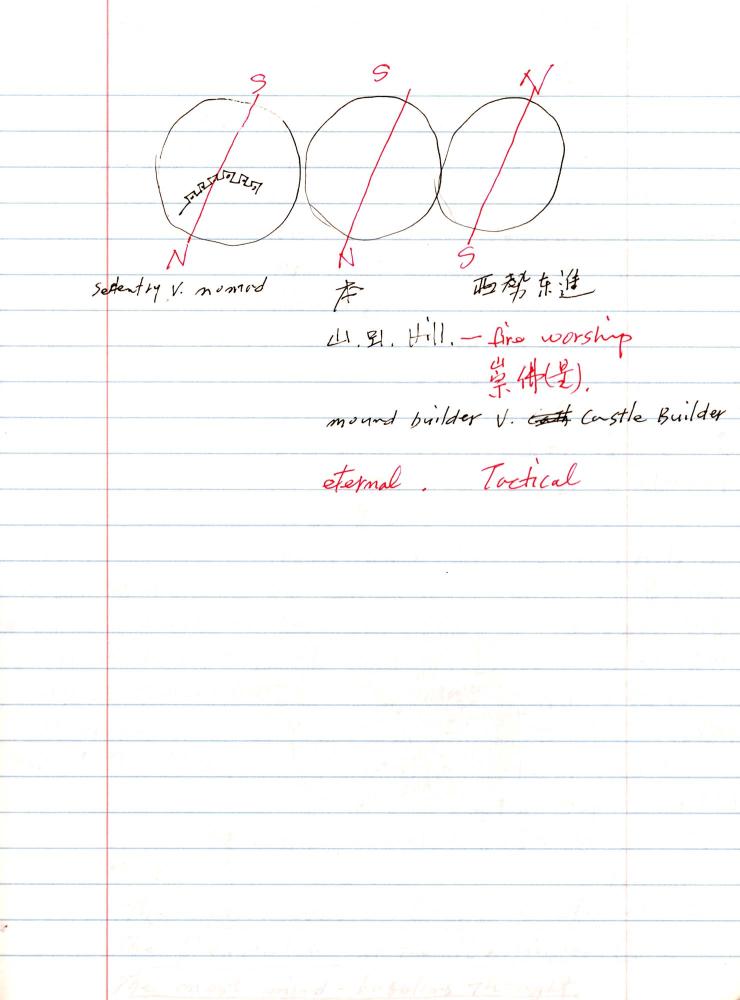 S S N
N N S
Sedentry v. nomad 本 西勢东進
山. 뫼. Hill. — fire worship
崇佛(불).
mound builder v. Castle Builder
eternal . Tactical